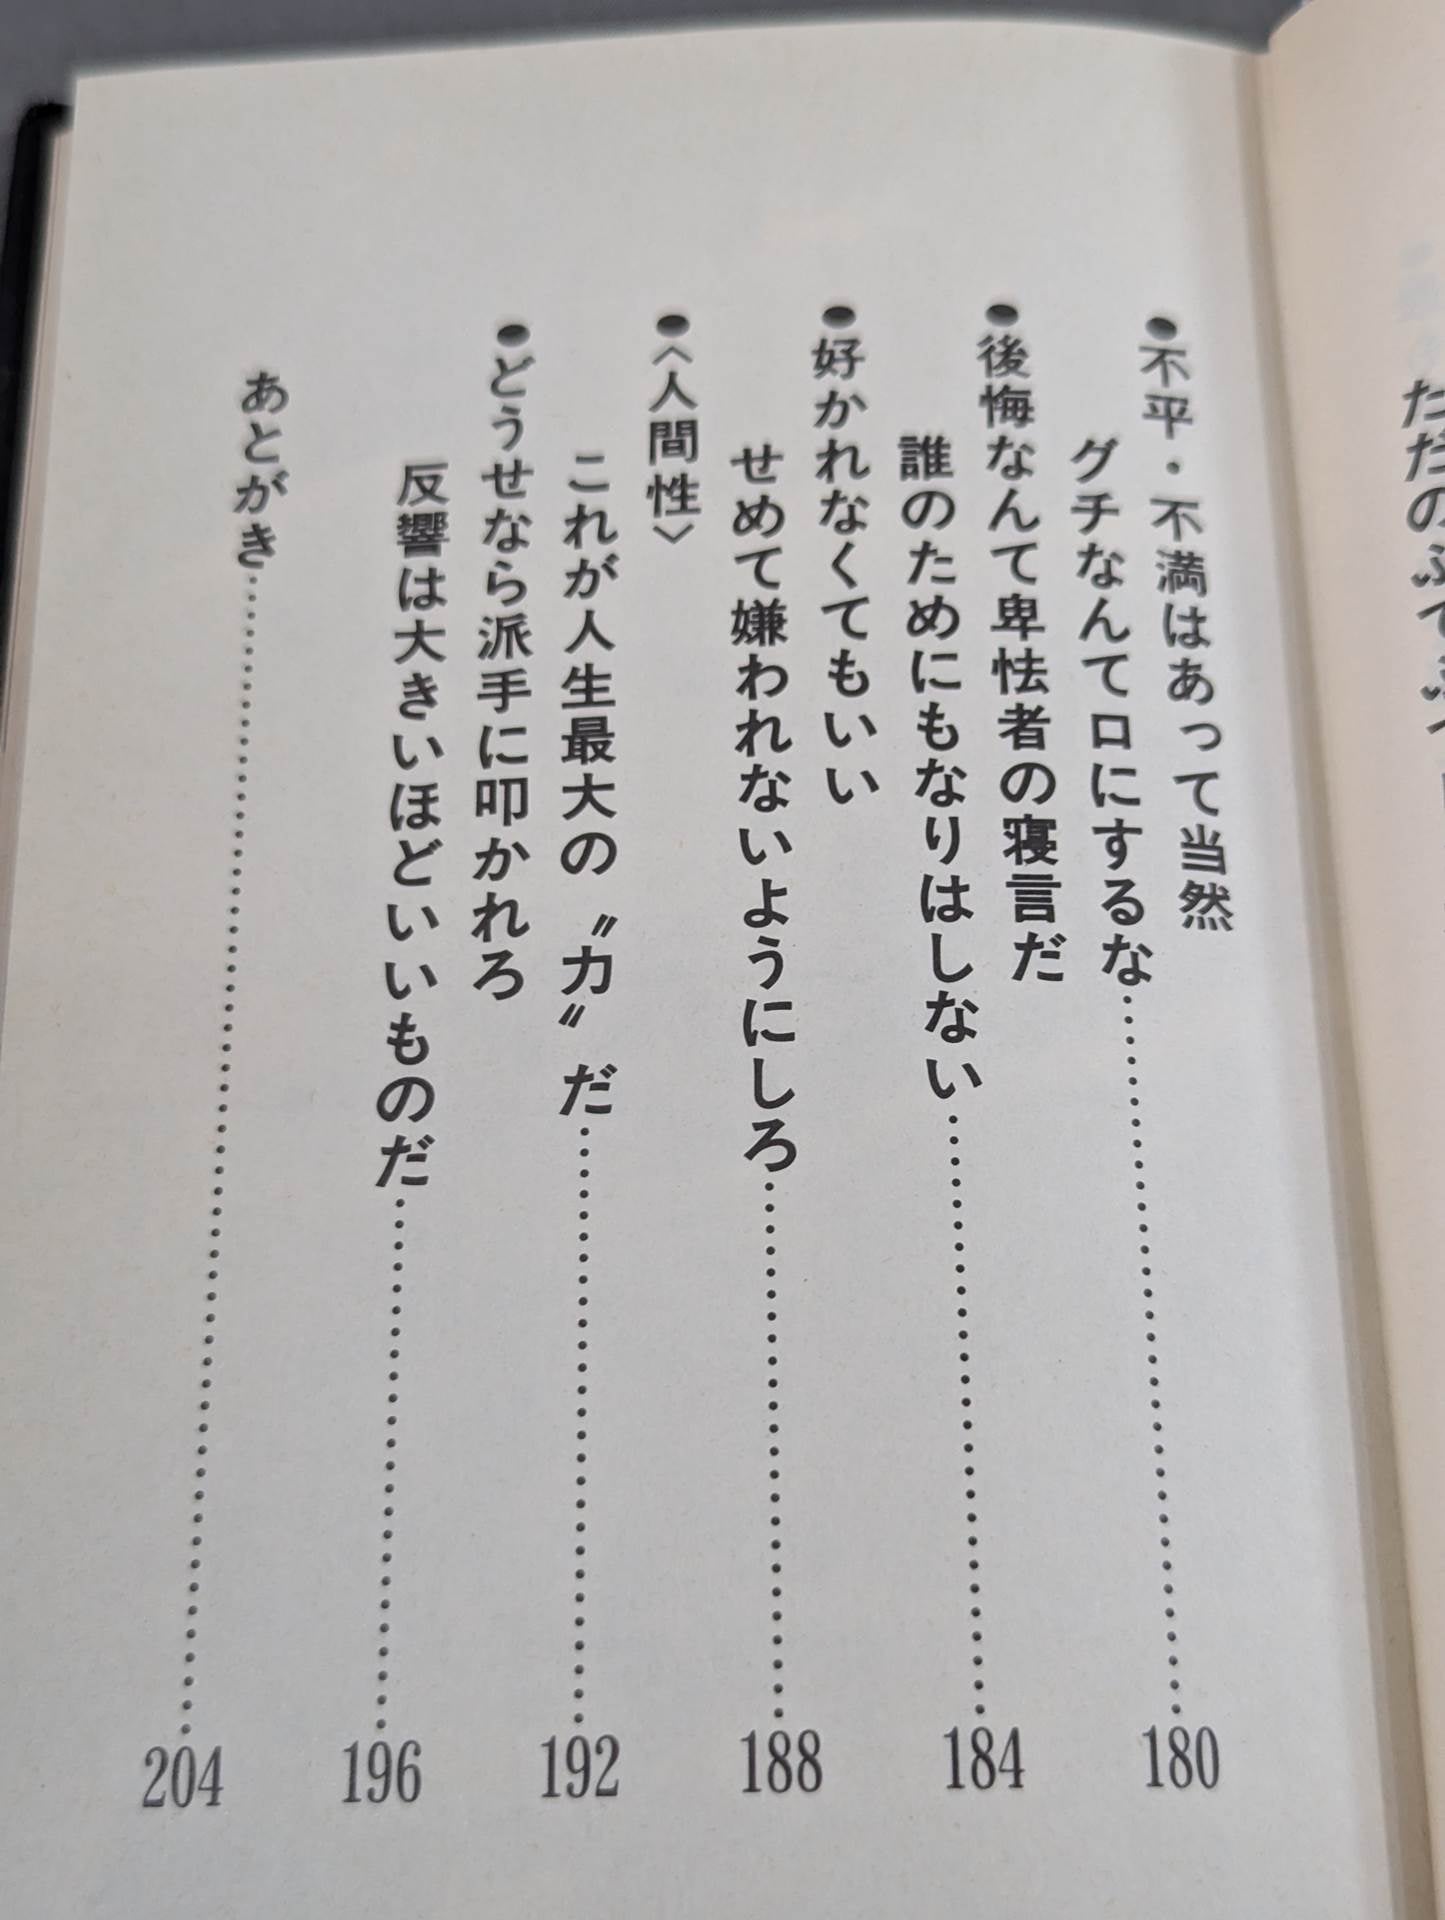 ●不平・不満はあって当然
グチなんて口にするな……180
●後悔なんて卑怯者の寝言だ
誰のためにもなりはしない……184
●好かれなくてもいい
せめて嫌われないようにしろ……188
●〈人間性〉
これが人生最大の〝力〟だ……192
●どうせなら派手に叩かれろ
反響は大きいほどいいものだ……196
あとがき……204